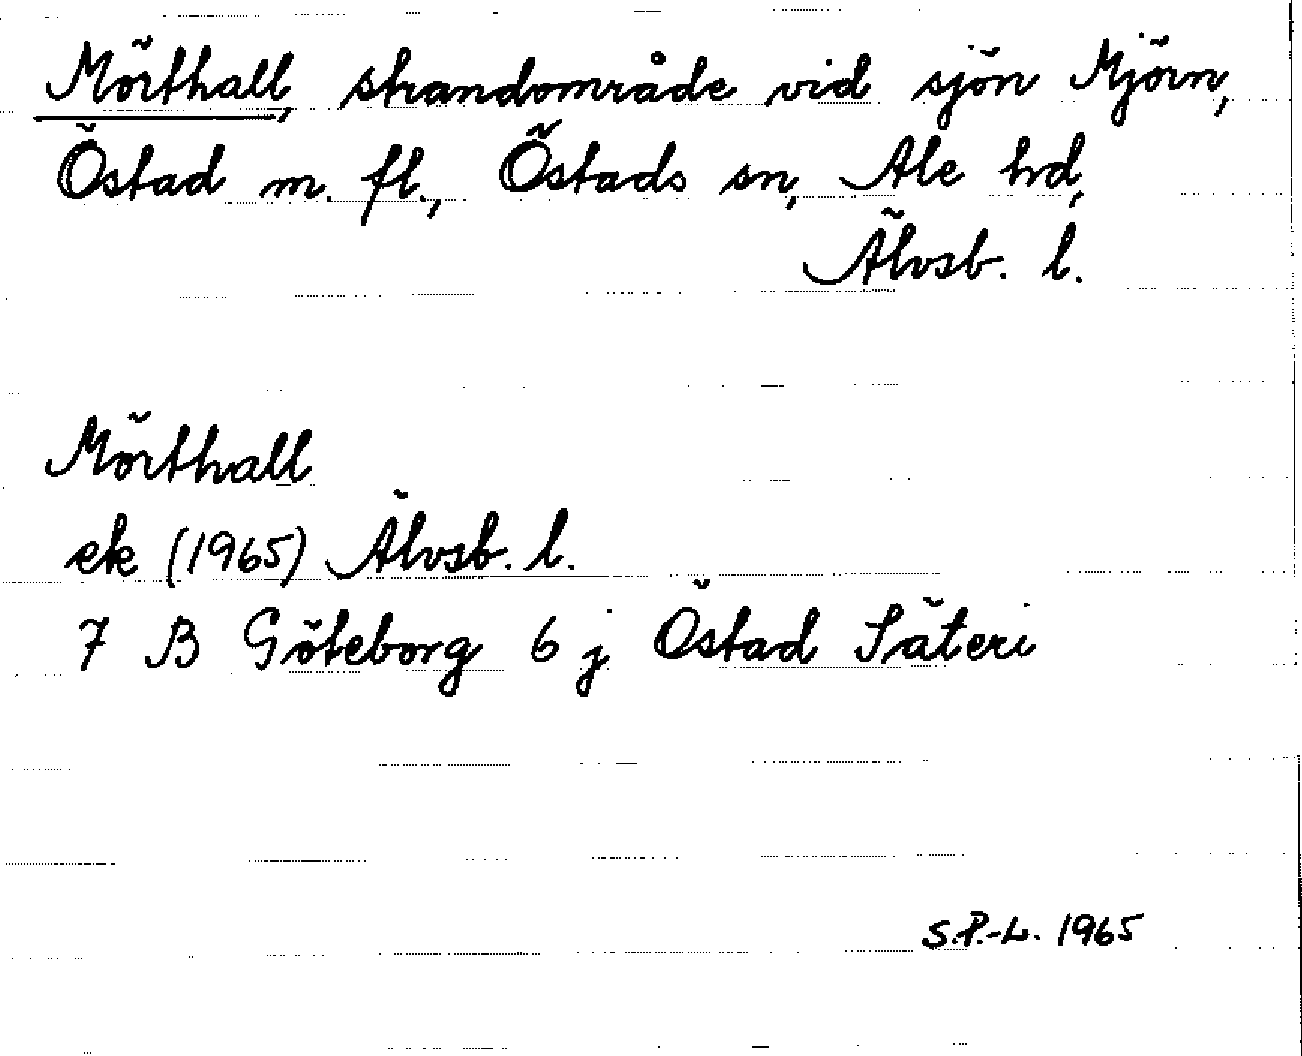 Mörthall, strandområde vid sjön Mjörn,
Östad m. fl., Östads sn, Ale hd,
Älvsb. l.
Mörthall
ek (1965) Älvsb. l.
7 B Göteborg 6 j Östad Säteri
S.P.-L. 1965